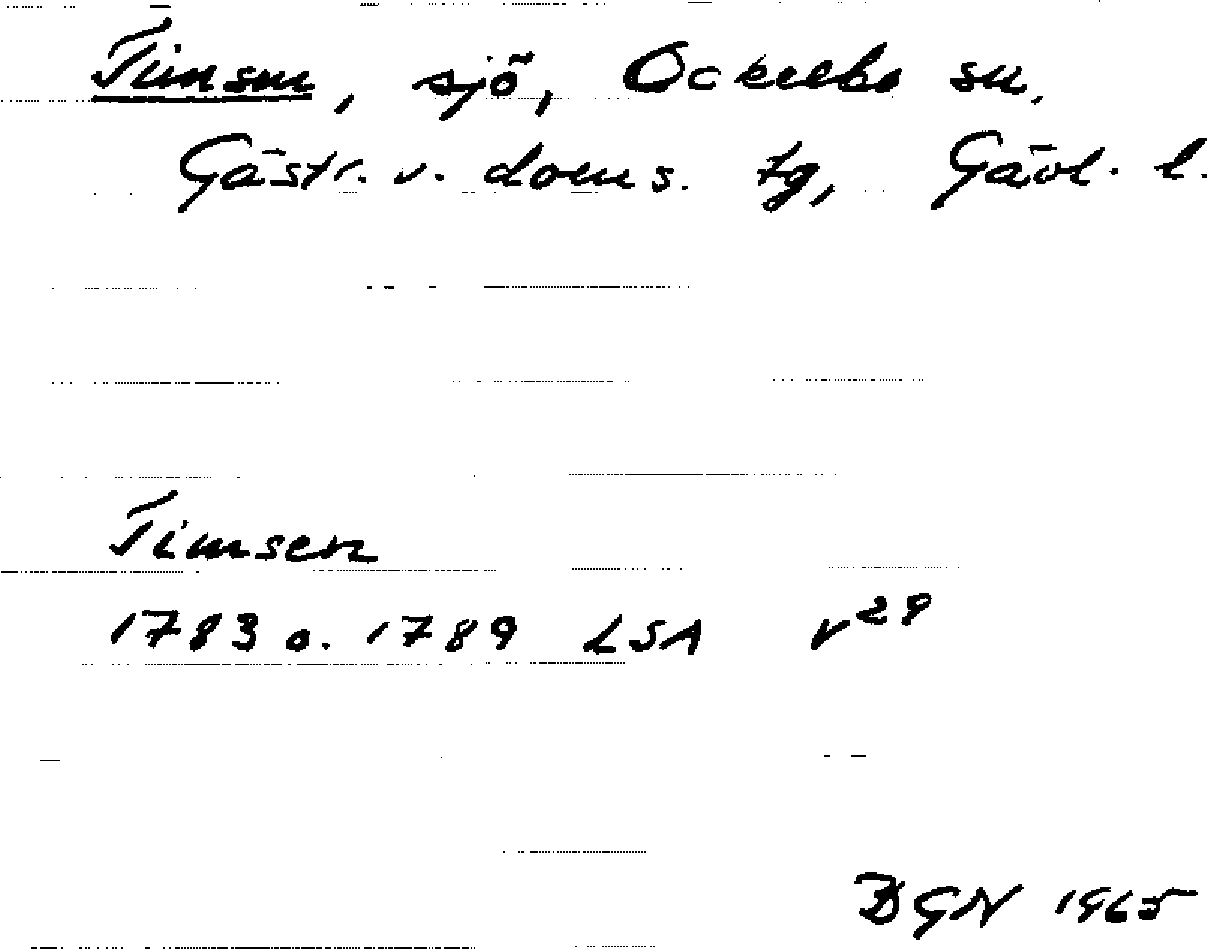 Timsen, sjö, Ockelbo sn,
Gästr. v. doms. tg, Gävl. l.
Timsen
1783 o. 1789 LSA v²⁹
DGN 1965